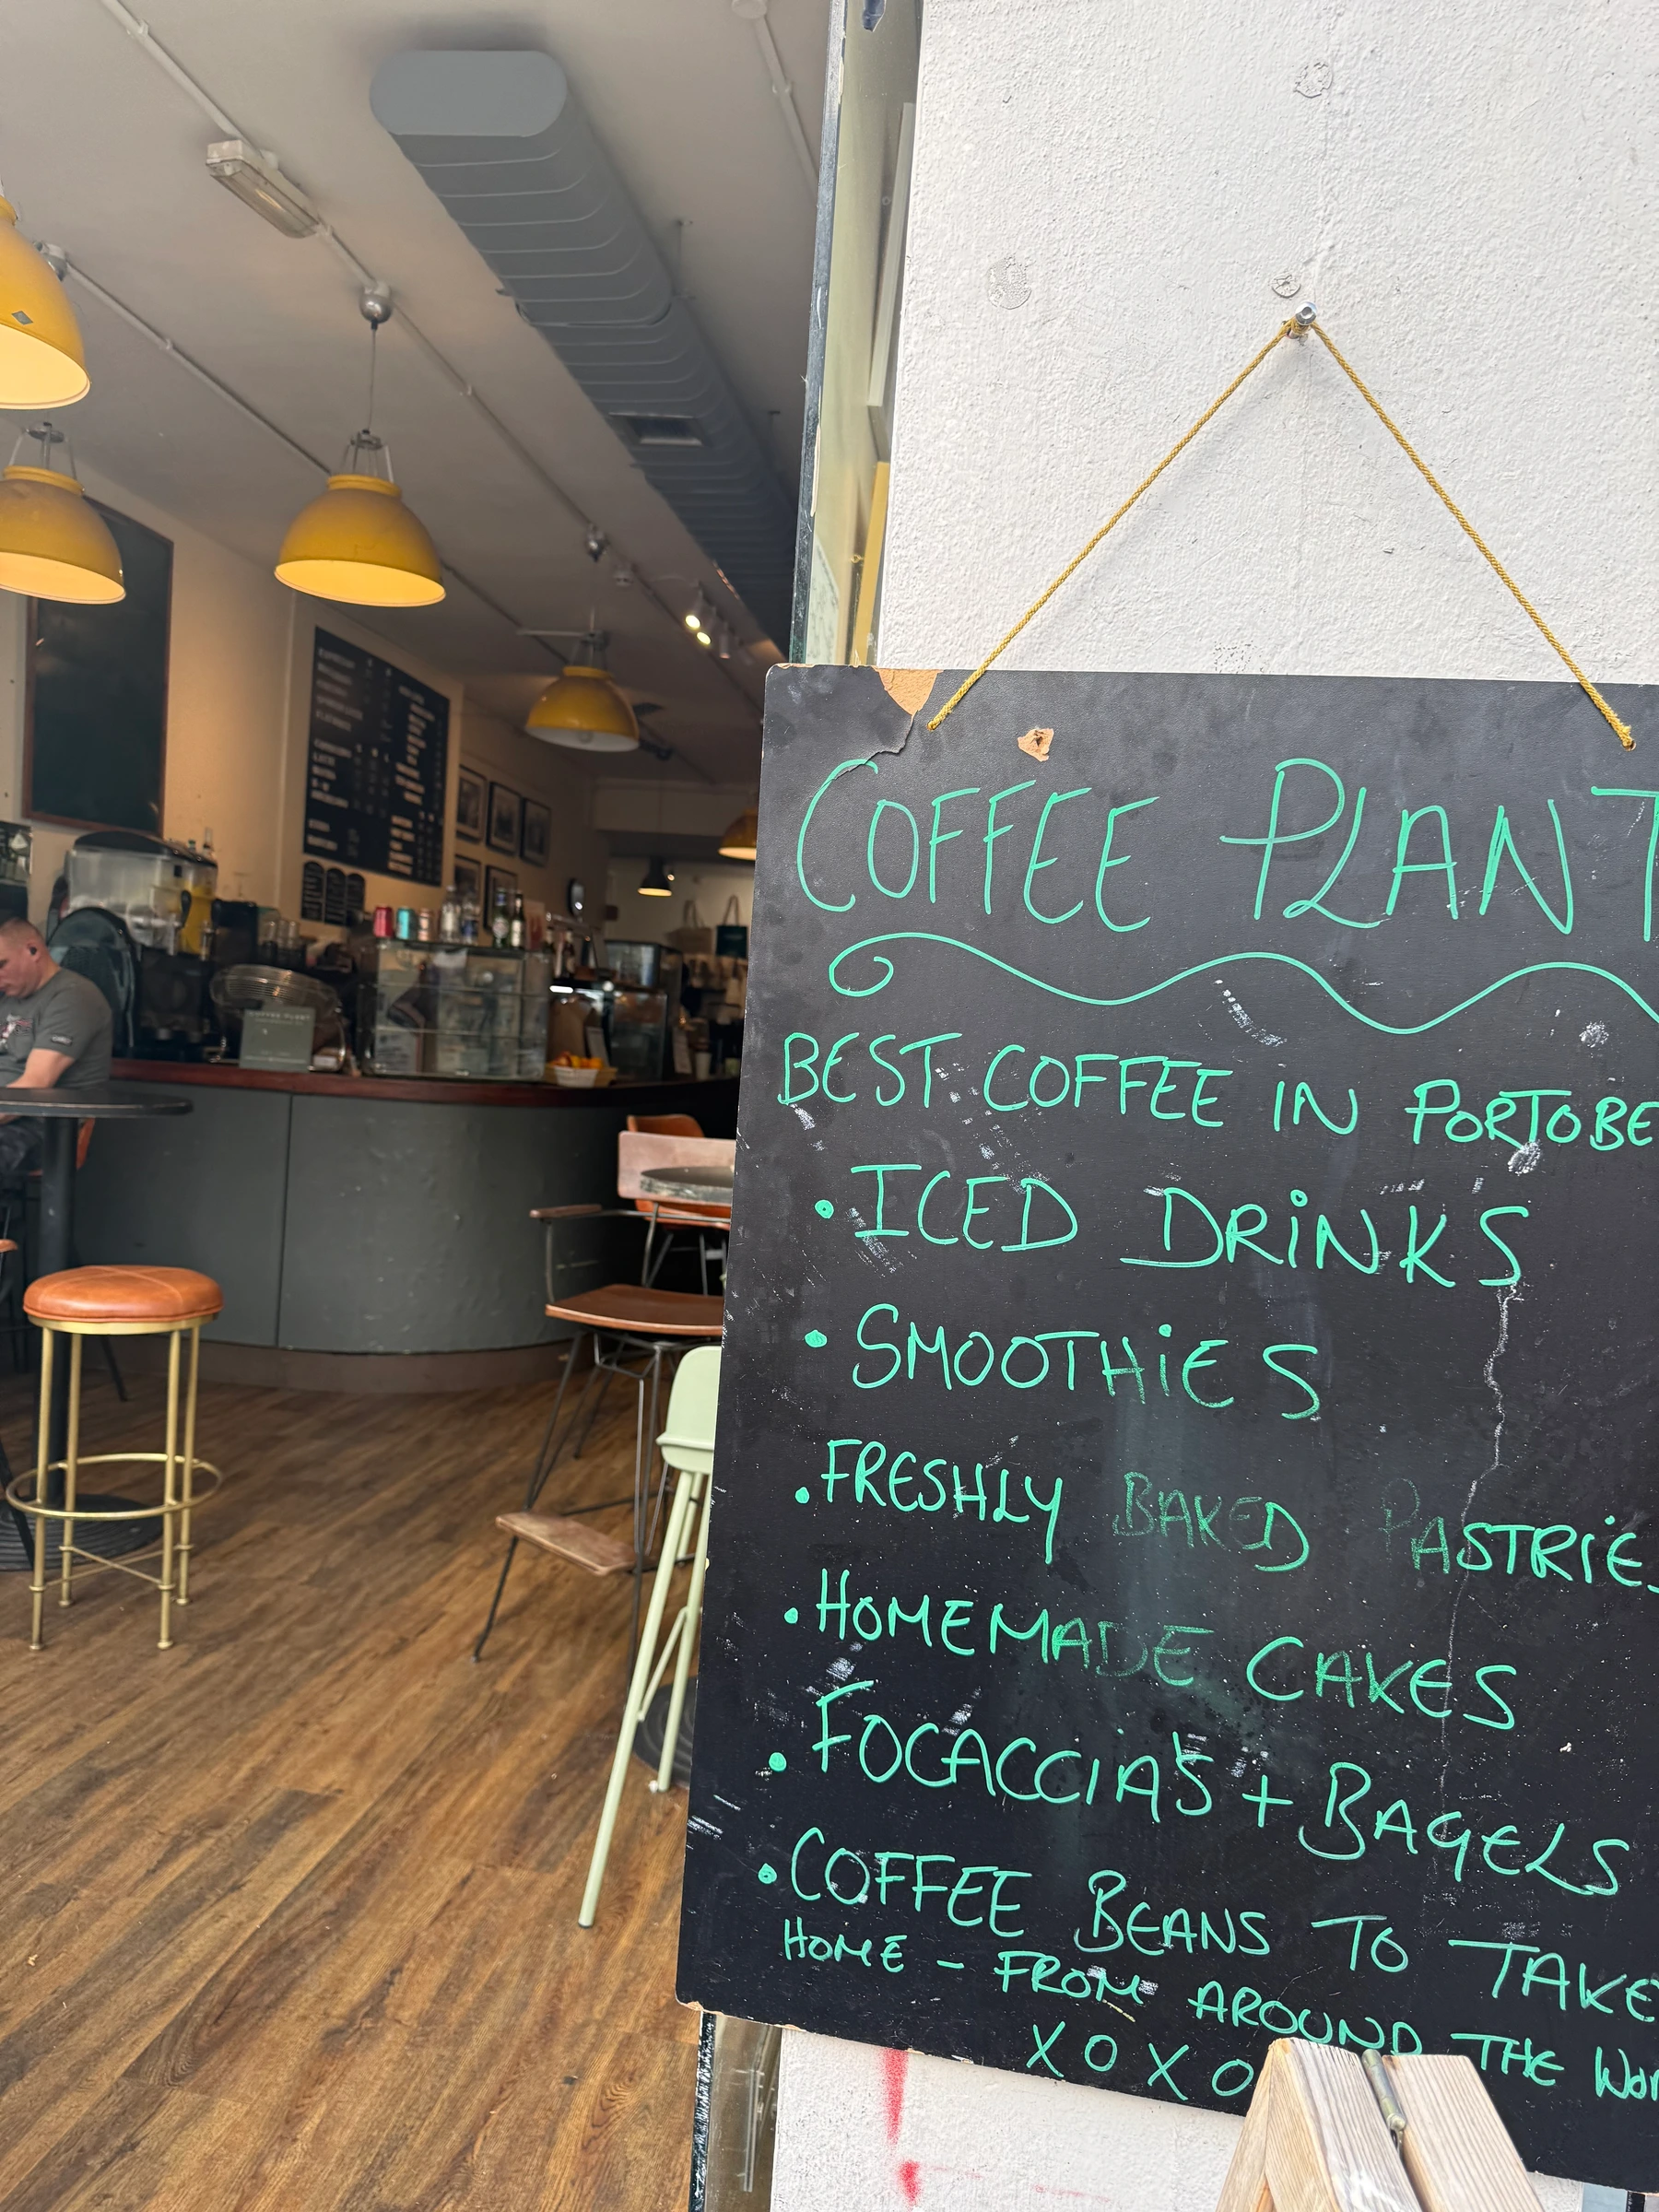 COFFEE PLANT
BEST COFFEE IN PORTOBE
• ICED DRINKS
• SMOOTHIES
• FRESHLY BAKED PASTRIES
• HOMEMADE CAKES
• FOCACCIA'S + BAGELS
• COFFEE BEANS TO TAKE
HOME - FROM AROUND THE WOR
XOXO
COFFEE PLANT